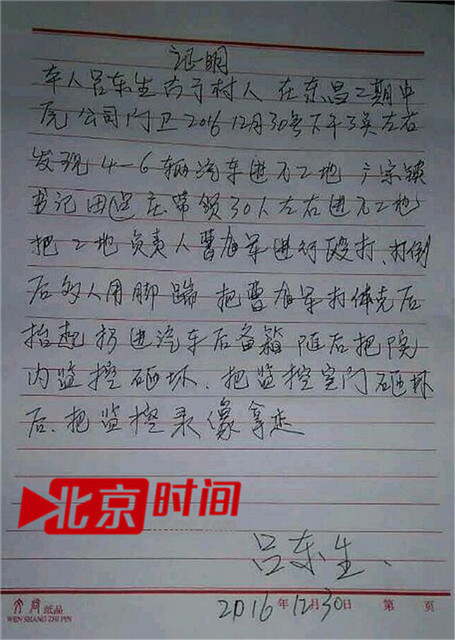 证明
本人吕东生 南于村人 在东昌二期中
尾公司门卫2016 12月30号下午3点左右
发现4-6辆汽车进入工地 广宗镇
书记田 庄带领30人左右进入工地
把工地负责人曹 军进行殴打、打倒
后多人用脚踹 把曹 军打休克后
抬起扔进汽车后备箱 随后把院
内监控砸坏、把监控室门砸坏
后、把监控录像拿走
北京时间
吕东生、
2016年12月30日 第 页
纸品
WEN SHANG ZHI PIN